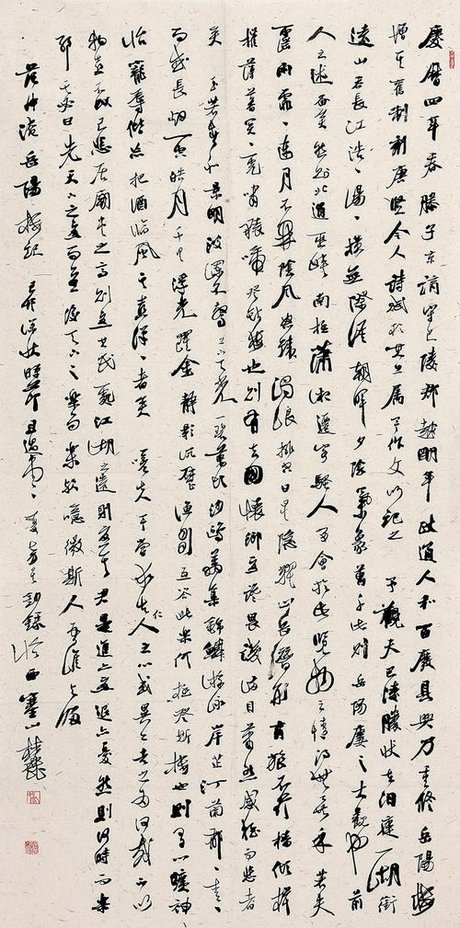 慶曆四年春滕子京謫守巴陵郡越明年政通人和百廢具興乃重修岳陽樓
增其舊制刻唐賢今人詩賦於其上屬予作文以記之 予觀夫巴陵勝狀在洞庭一湖銜
遠山吞長江浩浩湯湯橫無際涯朝暉夕陰氣象萬千此則岳陽樓之大觀也前
人之述備矣然則北通巫峽南極瀟湘遷客騷人多會於此覽物之情得無異乎 若夫
霪雨霏霏連月不開陰風怒號濁浪排空日星隱耀山岳潛形商旅不行檣傾楫
摧薄暮冥冥虎嘯猿啼登斯樓也則有去國懷鄉憂讒畏譏滿目蕭然感極而悲者
矣 至若春和景明波瀾不驚上下天光一碧萬頃沙鷗翔集錦鱗游泳岸芷汀蘭郁郁青青
而或長煙一空皓月千里浮光躍金靜影沉璧漁歌互答此樂何極登斯樓也則有心曠神
怡寵辱偕忘把酒臨風其喜洋洋者矣 嗟夫予嘗求古仁人之心或異二者之為何哉不以
物喜不以己悲居廟堂之高則憂其民處江湖之遠則憂其君是進亦憂退亦憂然則何時而樂
耶其必曰先天下之憂而憂後天下之樂而樂歟噫微斯人吾誰與歸
范仲淹岳陽樓記